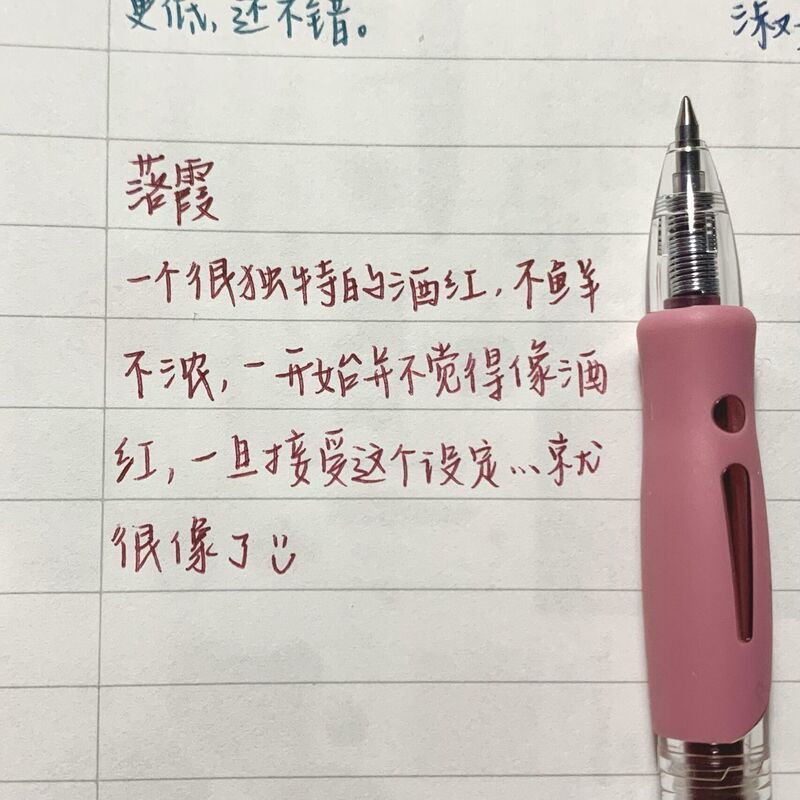 更低，还不错。
淑
落霞
一个很独特的酒红，不鲜
不浓，一开始并不觉得像酒
红，一旦接受这个设定…就
很像了